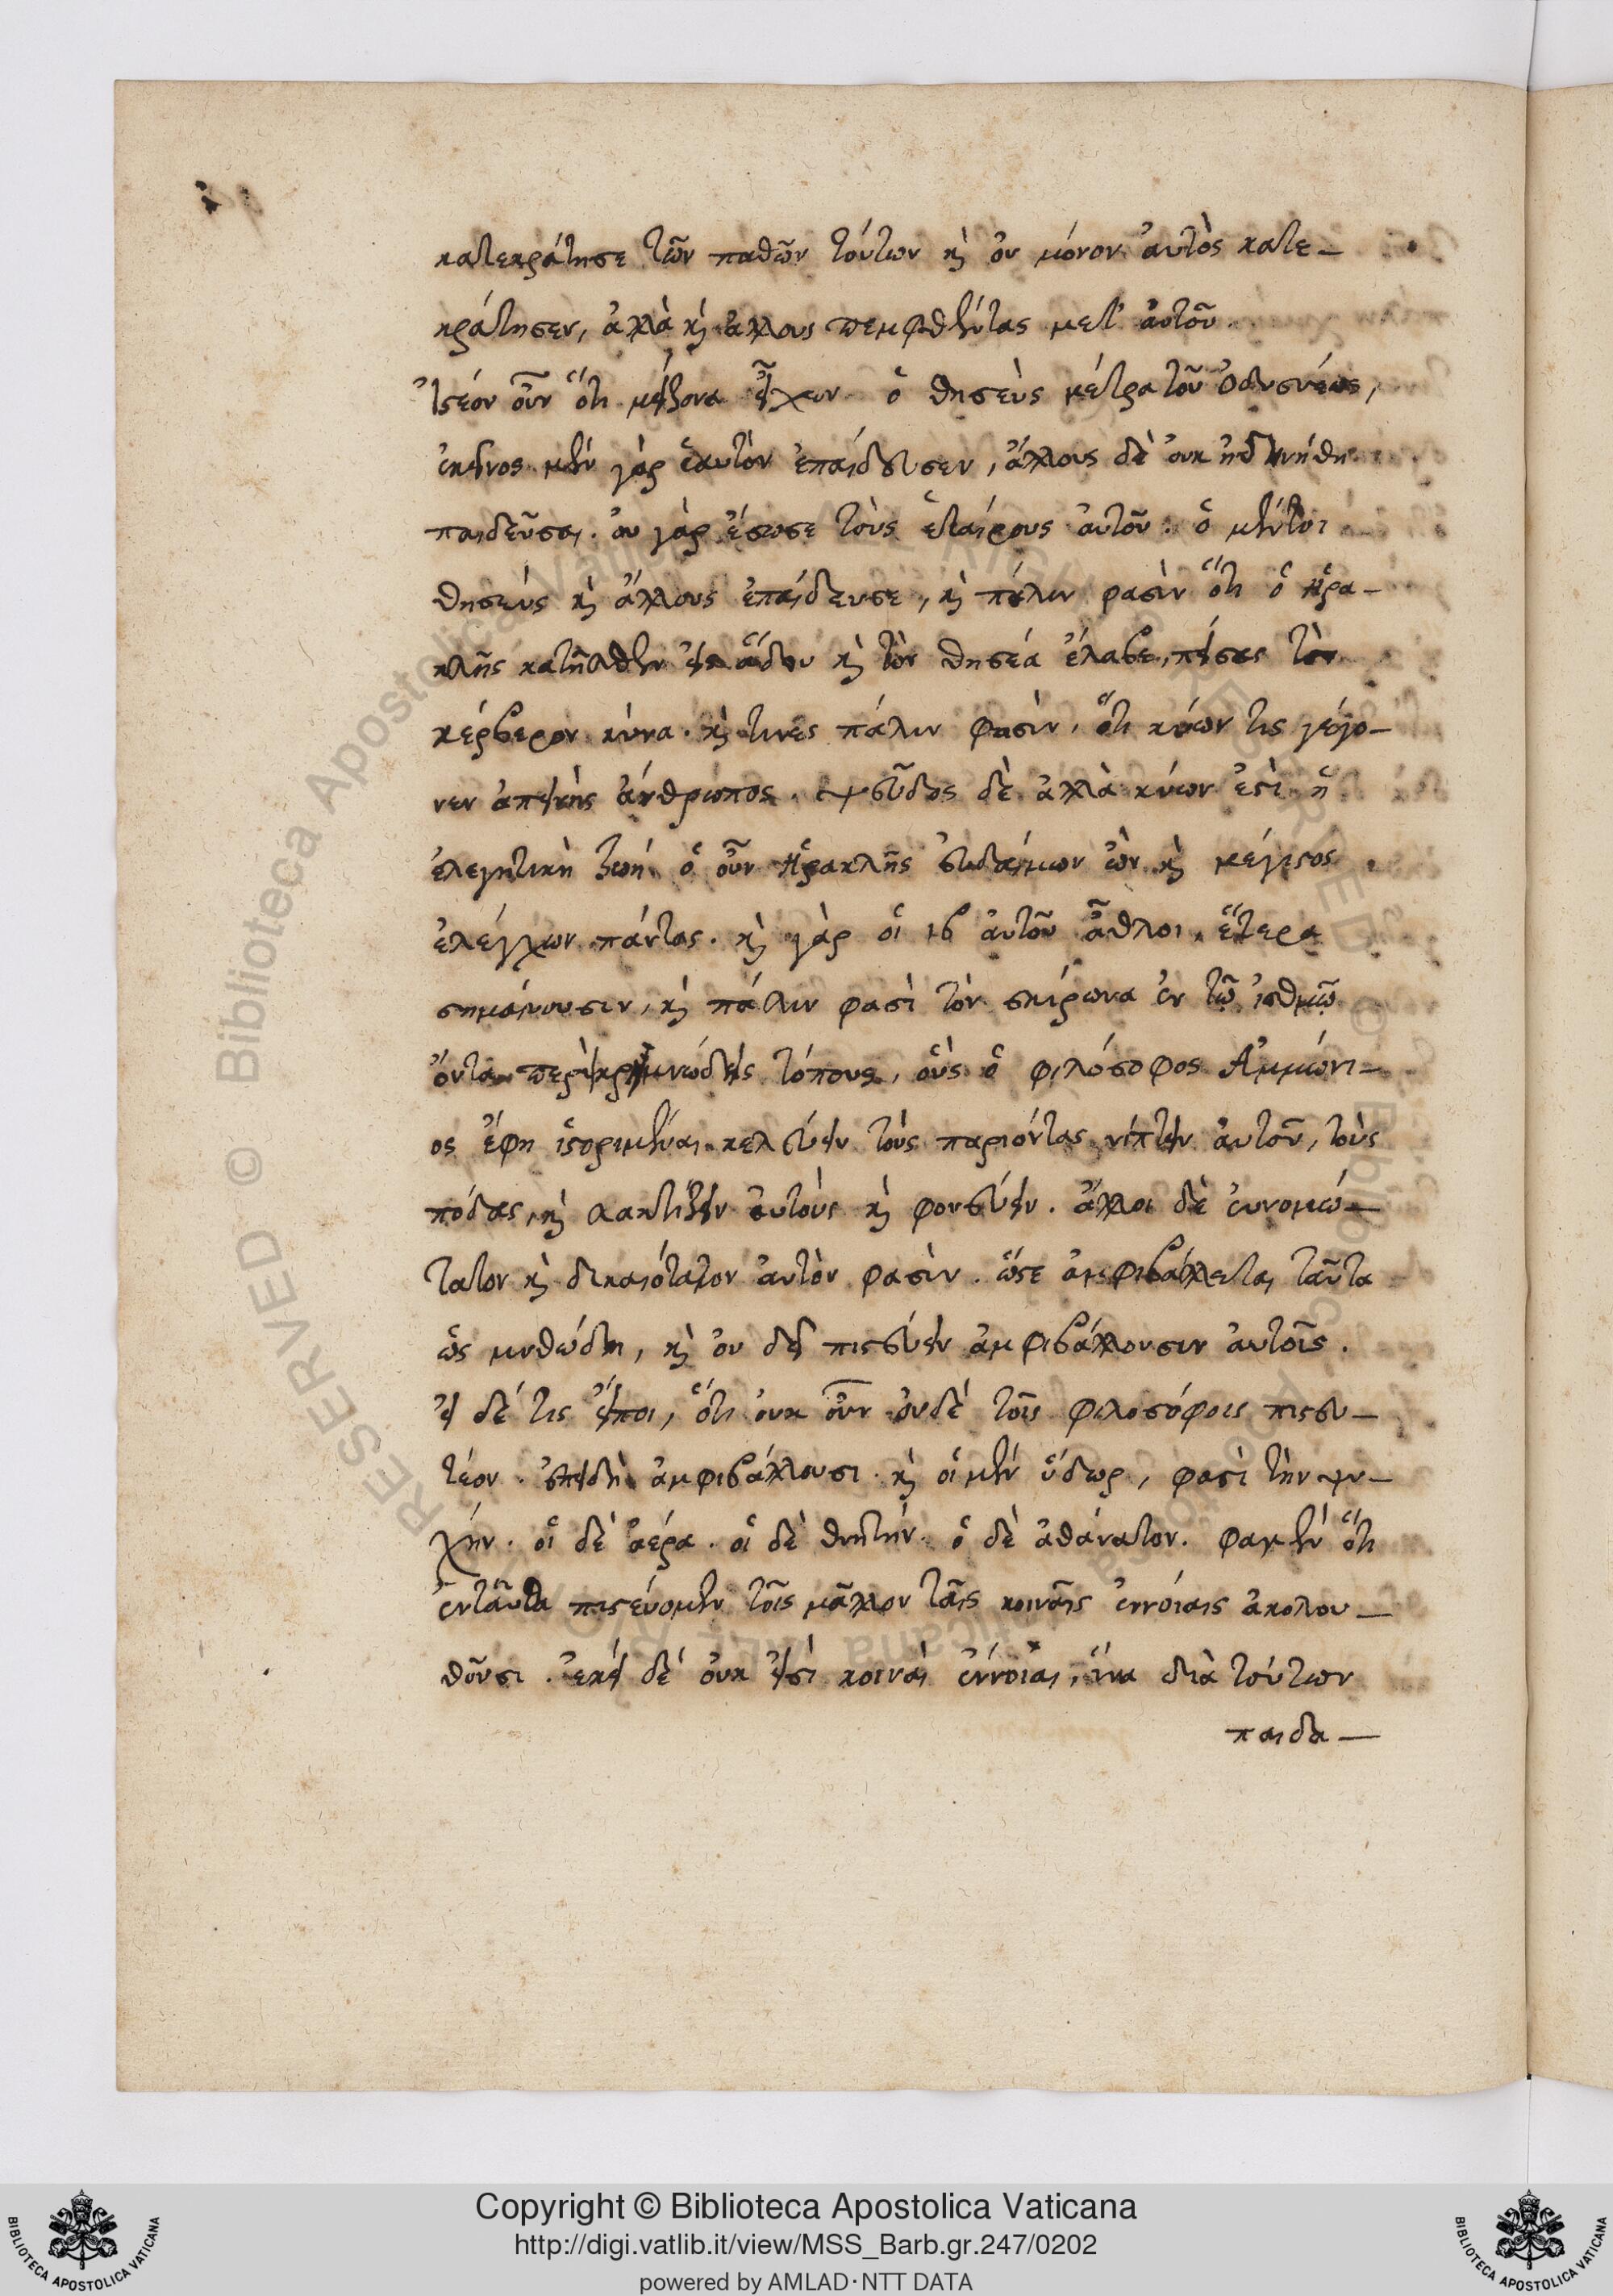 κατεκράτησε τῶν παθῶν τούτων κὶ ὀυ μόνον ἀυτὸς κατε—
κράτησεν, ἀλλὰ κὶ ἄλλους πεμφθέντας μετ' ἀυτοῦ.
ἰστέον οὖν ὅτι μείζονα εἶχεν ὁ θησεὺς μέτρα τοῦ ὀδυσσέως,
ἐκεῖνος μὲν γὰρ ἑαυτὸν ἐπαίδευσεν, ἄλλους δὲ ὀυκ ἠδυνήθη
παιδεῦσαι. ὀυ γὰρ ἔσωσε τοὺς ἑταίρους ἀυτοῦ. ὁ μέντοι
θησεὺς κὶ ἄλλους ἐπαίδευσε, κὶ πάλιν φασὶν ὅτι ὁ ἡρα—
κλῆς κατῆλθεν εἰς ἅδου κὶ τὸν θησέα ἔλαβε, πείσας τὸν
κέρβερον κύνα. κὶ τινες πάλιν φασὶν, ὅτι κύων τις γέγο—
νεν ἀπεικὴς ἄνθρωπος. ψεῦδος δὲ ἀλλὰ κύων ἐστὶ ἡ
ἐλεγητικὴ ζωή. ὁ οὖν ἡρακλῆς ἐυδαίμων ὢν κὶ μέγιστος
ἐλέγχων πάντας. κὶ γὰρ οἱ ιβ ἀυτοῦ ἆθλοι, ἕτερα
σημαίνουσιν, κὶ πάλιν φασὶ τὸν σκίρωνα ἐν τῷ ἰσθμῷ
ὄντα περὶ κρημνώδεις τόπους, οὓς ὁ φιλόσοφος Ἀμμώνι—
ος ἔφη ἱστοριμέναι κελεύειν τοὺς παριόντας νίπτειν ἀυτοῦ, τοὺς
πόδας, κὶ λακτίζειν ἀυτοὺς κὶ φονεύειν. ἄλλοι δὲ ἐυνομώ—
τατον κὶ δικαιότατον ἀυτὸν φασὶν. ὥστε ἀμφιβάλλεται ταῦτα
ὡς μυθώδη, κὶ ὀυ δεῖ πιστεύειν ἀμφιβάλλουσιν ἀυτοῖς.
εἰ δέ τις εἴποι, ὅτι ὀυκ οὖν ὀυδέ τοῖς φιλοσόφοις πιστευ—
τέον. ἐπειδὴ ἀμφιβάλλουσι. κὶ οἱ μὲν ὕδωρ, φασὶ τὴν ψυ—
χήν. οἱ δὲ ἀέρα. οἱ δὲ θνητήν. ὁ δὲ ἀθάνατον. φαμὲν ὅτι
ἐνταῦθα πιστεύομεν τοῖς μᾶλλον ταῖς κοιναῖς ἐννοίαις ἀκολου—
θοῦσι. ἐκεῖ δέ ὀυκ εἰσί κοιναί ἐννοίαι, ἵνα διὰ τούτων
παιδα—
Copyright © Biblioteca Apostolica Vaticana
http://digi.vatlib.it/view/MSS_Barb.gr.247/0202
powered by AMLAD·NTT DATA